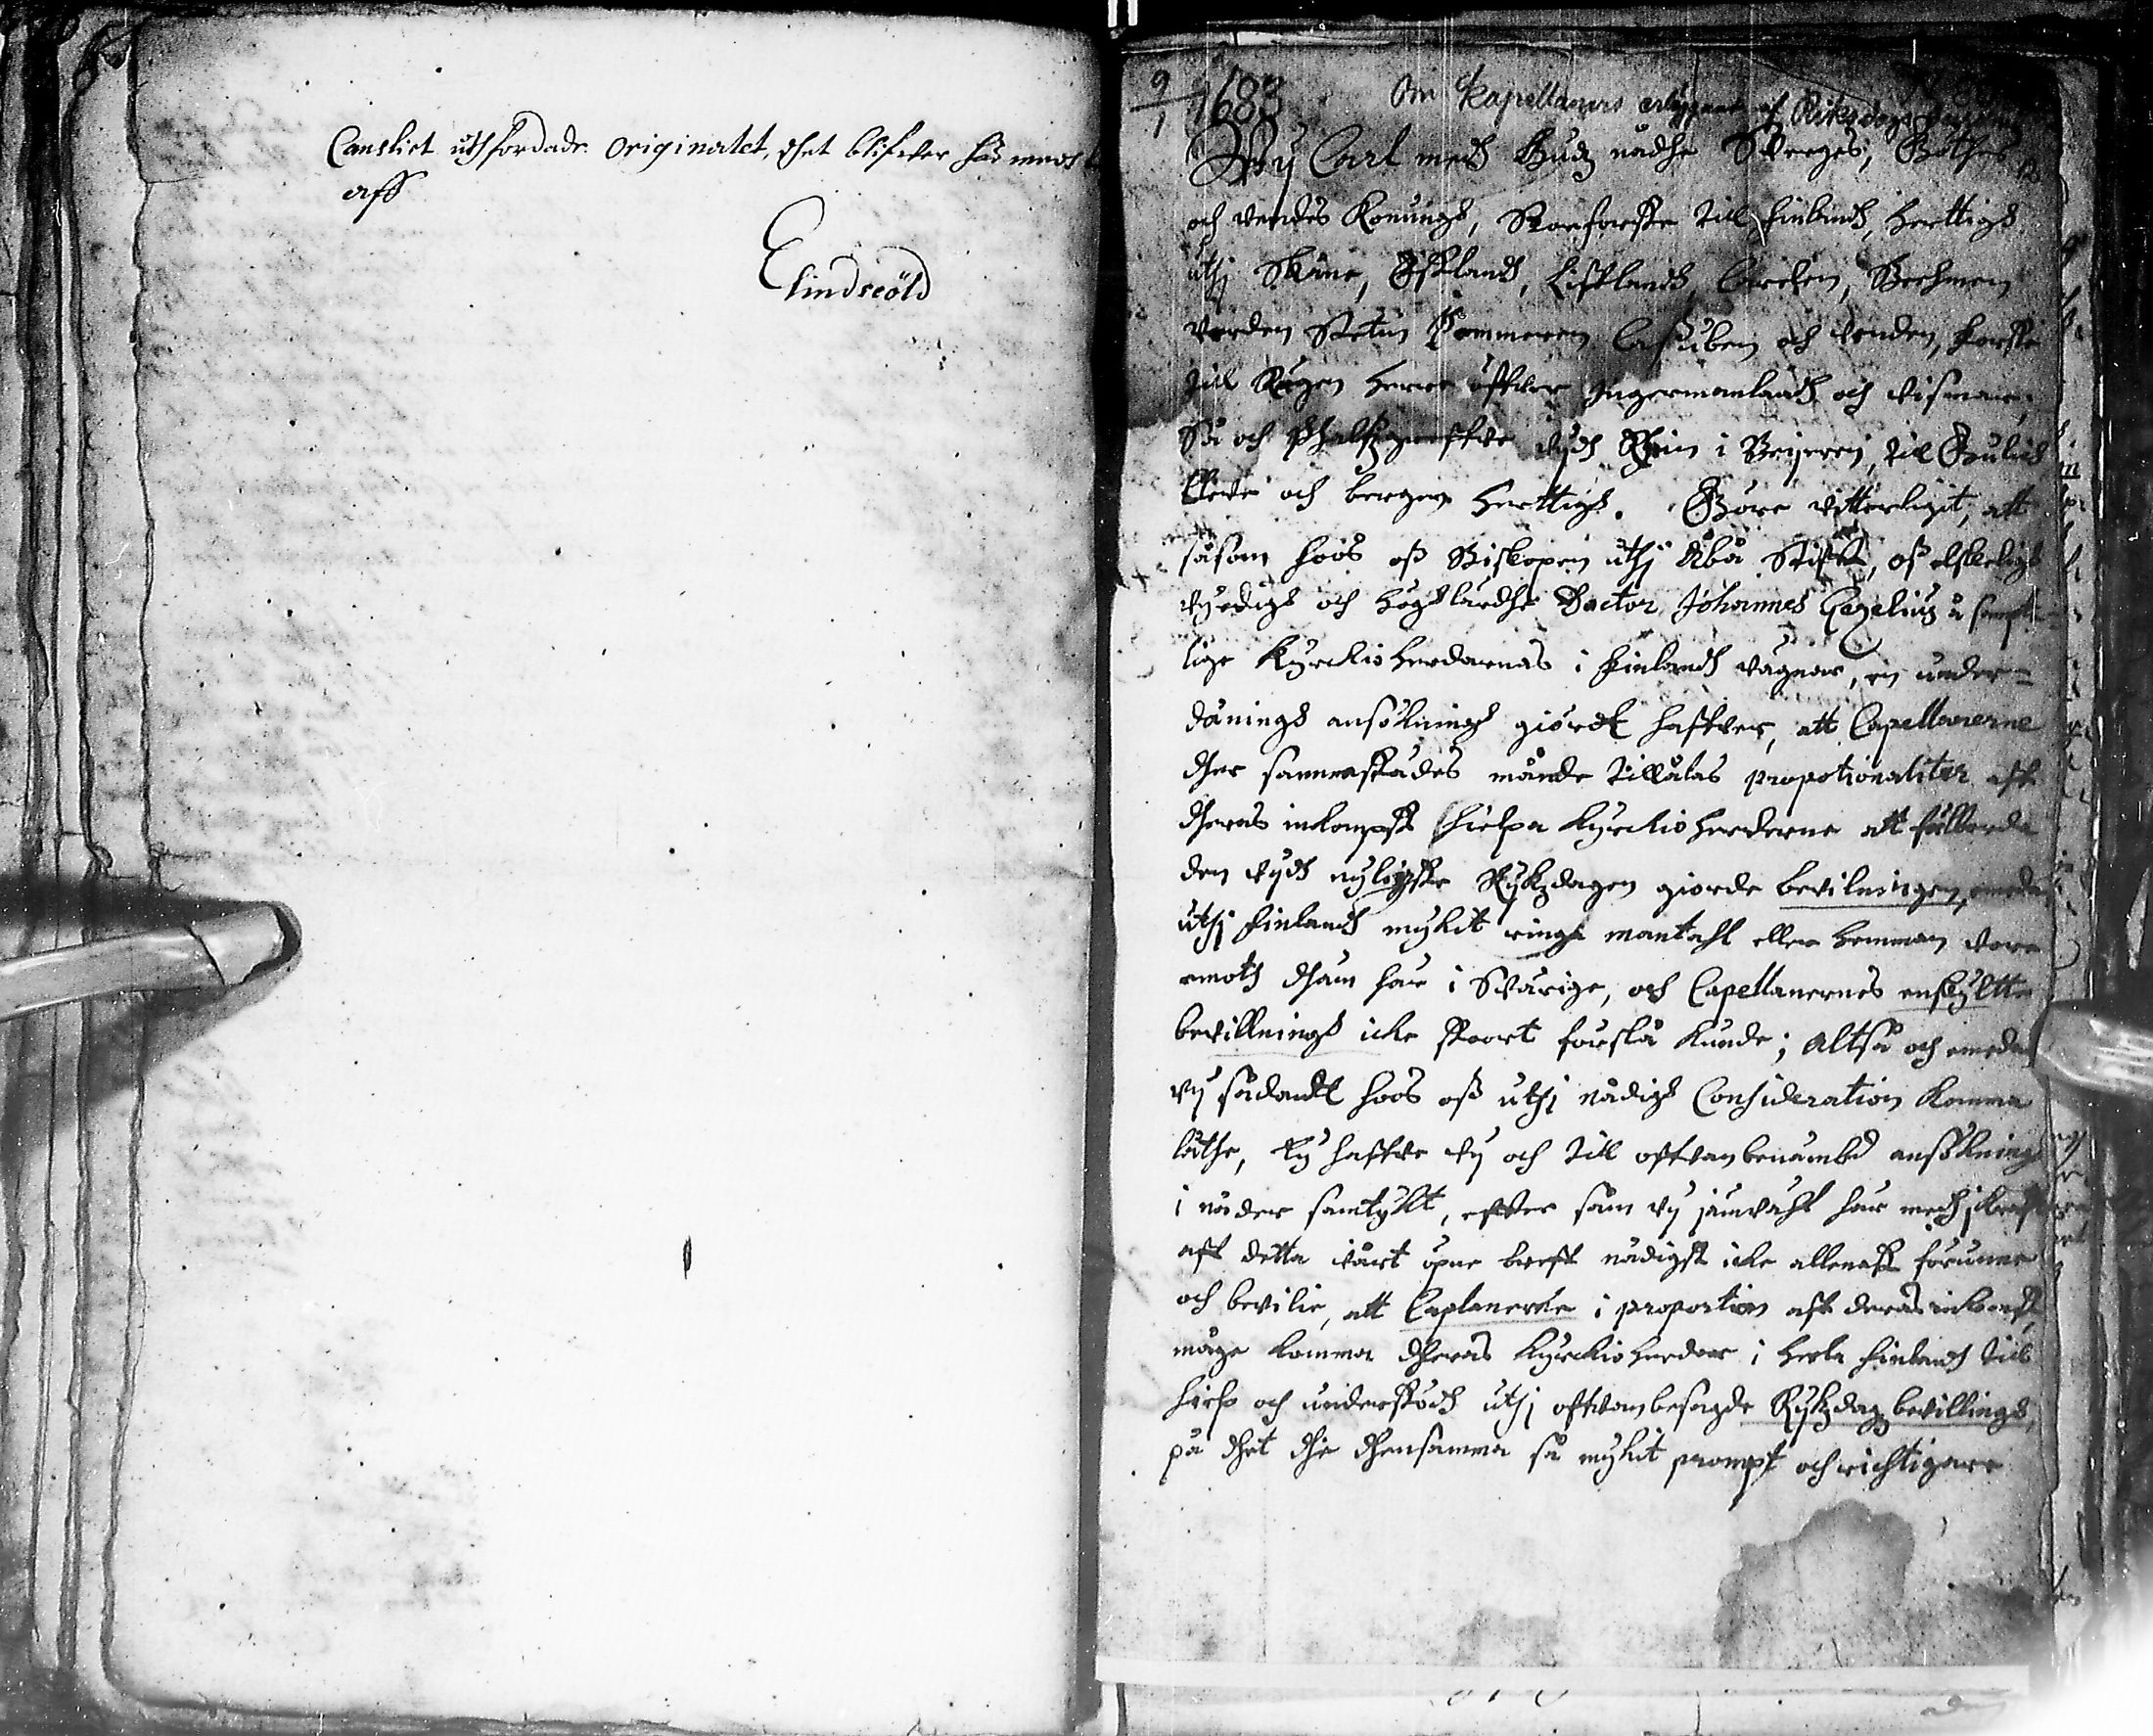 Canzliet uthfordade originalet, dhet blifwer här medh
aff
E Lindsciöld
9/1 1683
Om Kapellaners erläggande af Riksdags
Wij Carl medh Gudz nådhe Swerges, Göthes
och Wendes Konungh, Storförste till Finlandh, Herttigh
uthj Skåne, Estlandh, Lifflandh, Carelen, Brehmen
Verden Stetin Pommeren Cassuben och Wenden, Förste
till Rügen Herre öffwer Ingermanlandh och Wismar,
Så och Phaltzgreffwe widh Rhein i Beijeren, till Gulich
Cleve och bergen Herttigh. Göre witterligit, att
såsom hoos oss Biskopen uthj Åbo Stifft, oss elskeligh
wyrdigh och höghlärdhe Doctor Johannes Gezelius å sampt-
lige Kyrckioherdarnas i Finlandh wägnar, en under=
dåningh ansökningh giordt haffwer, att Capellanerne
dher sammastädes måtte tillåtas propotionaliter aff
dheras inkompst hielpa Kyrckioherderne att fullborda
den widh nyligste Rykzdagen giorde bevilningen, emedan
uthj Finlandh mykit ringa mantahl eller hemman wore
emoth dhäm här i Swärige, och Capellanernes enskylte
bewillningh icke stoort förslå kunde; altså och emedan
wij sådandt hoos oss uthj nådigh Consideration komma
låthe, ty haffwe wij och till offwanbenämbd ansökningh
i nåder samtykt, effter såm wij jämwähl här medh i krafft
aff detta wårt öpne breff nådigst icke allenast förunne
och bevilie, att Caplanerne i proportion aff deras inkompst,
måge komma dheras Kyrckioherdar i heela Finlandh till
hielp och understödh uthj offwanbesagde Rykzdagz bewillingh,
på dhet dhe dhensamma så mykit prompt och richtigare